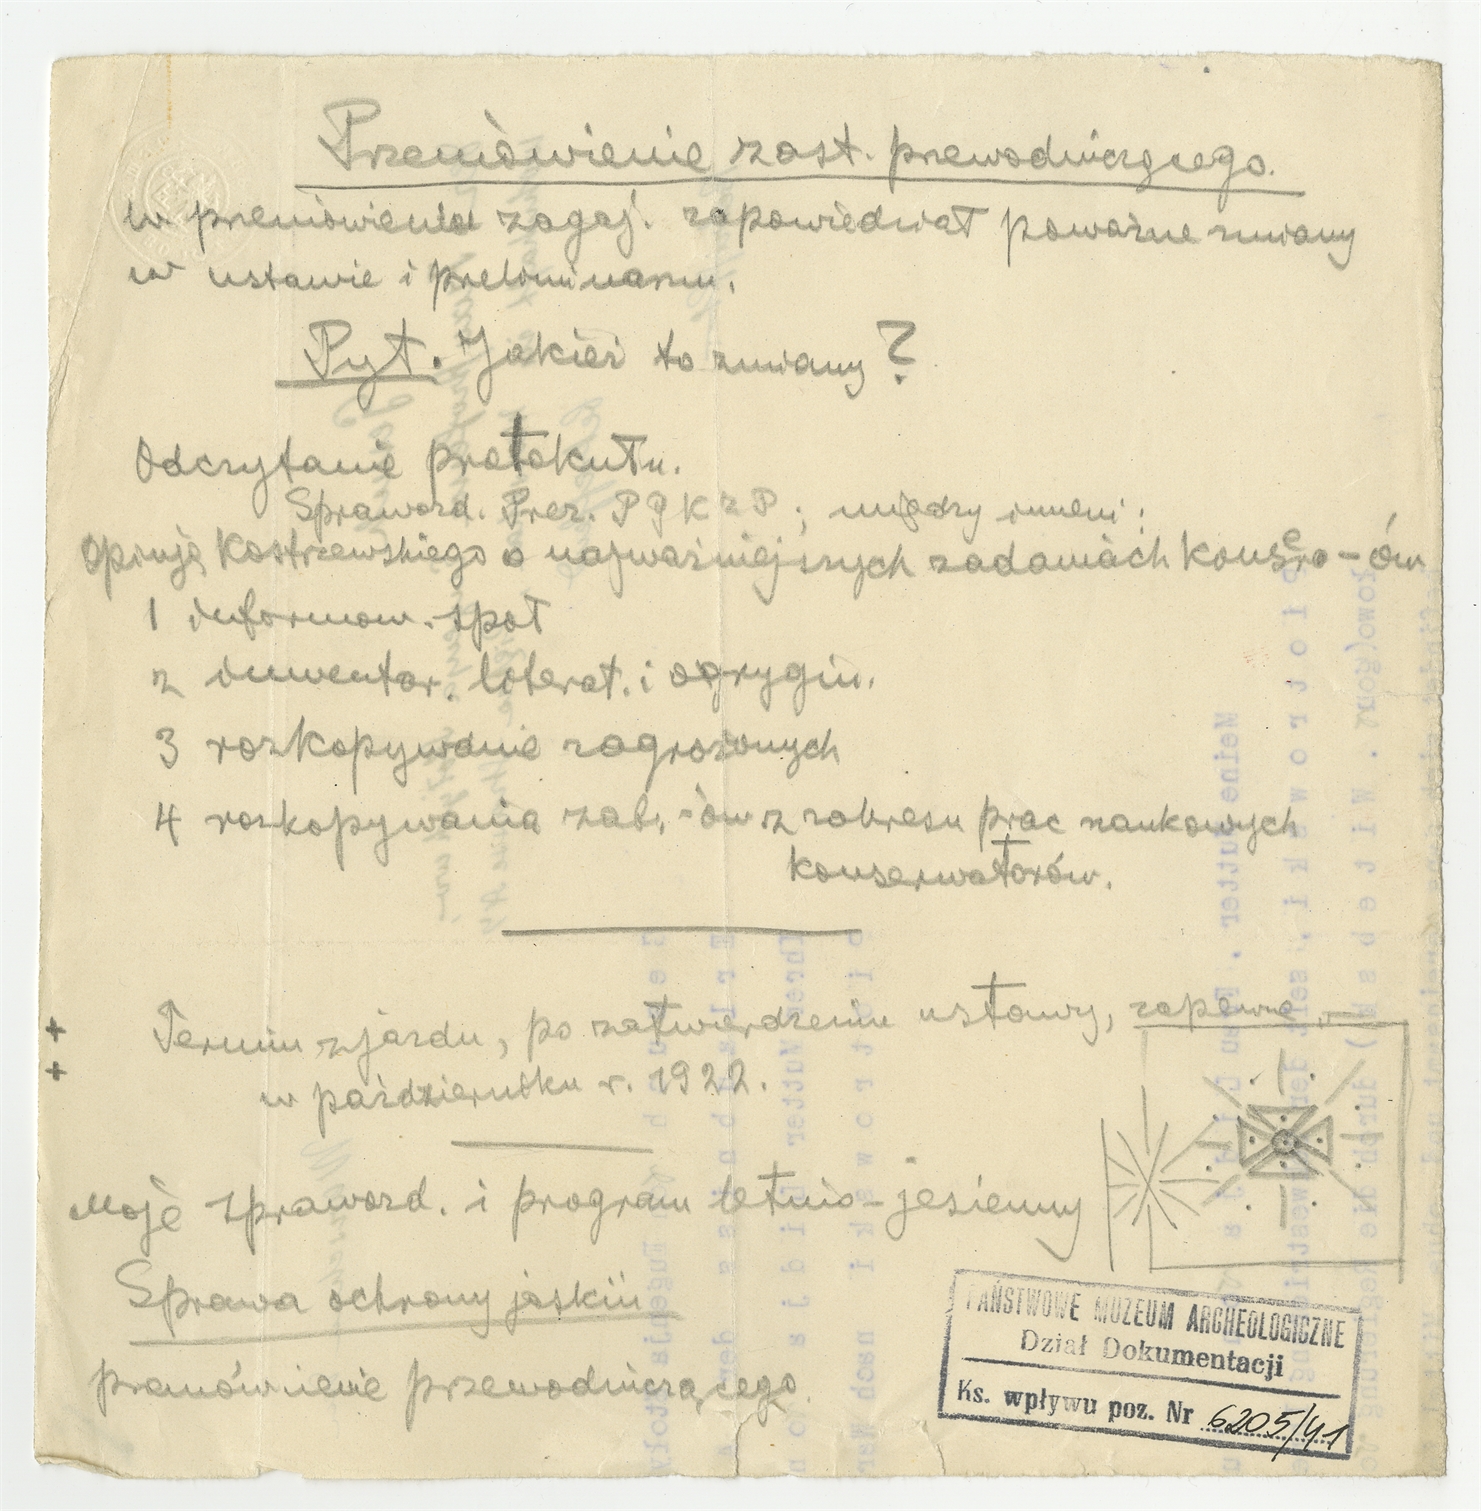 Przemówienie zast. przewodniczącego.
w przemówieniu zagaj. zapowiedział poważne zmiany
w ustawie i preliminarzu.
Pyt. Jakież to zmiany?
Odczytanie protokułu.
Sprawozd. Prez. PGKzP; między innemi:
Opinję Kostrzewskiego o najważniejszych zadaniach konserw-ów
1 informow. społ
2 inwentar. literat. i orygin.
3 rozkopywanie zagrożonych
4 rozkopywania zab.-ów z zakresu prac naukowych
konserwatorów.
+ Termin zjazdu, po zatwierdzeniu ustawy, zapewne
+ w październiku r. 1922.
Moje sprawozd. i program letnio-jesienny
Sprawa ochrony jaskiń
przemówienie przewodniczącego
PAŃSTWOWE MUZEUM ARCHEOLOGICZNE
Dział Dokumentacji
Ks. wpływu poz. Nr 6205/41